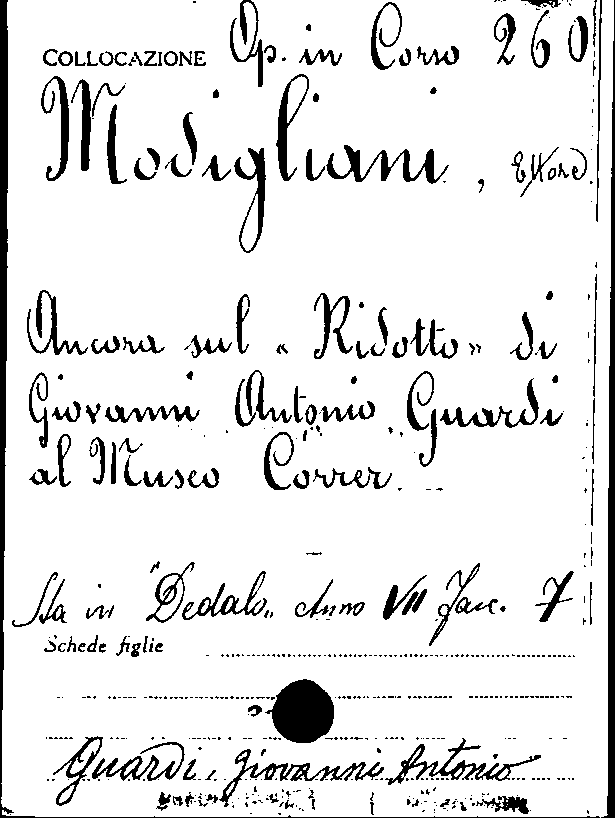 COLLOCAZIONE Op. in Corso 260
Modigliani, Ettore
Ancora sul « Ridotto » di
Giovanni Antonio Guardi
al Museo Correr.
Sta in "Dedalo" Anno VII Fasc. 7
Schede figlie
Guardi, Giovanni Antonio